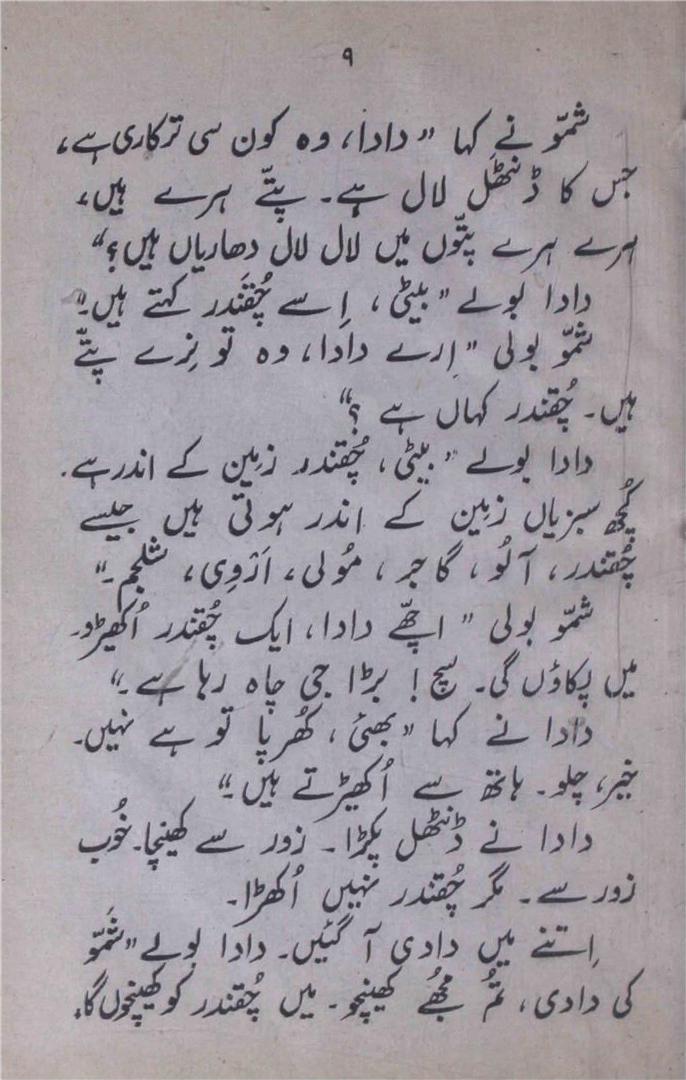 ۹
شمّو نے کہا ”دادا، وہ کون سی ترکاری ہے،
جس کا ڈنٹھل لال ہے۔ پتّے ہرے ہیں،
ہرے ہرے پتّوں میں لال لال دھاریاں ہیں؟“
دادا بولے ”بیٹی، اِسے چُقَندر کہتے ہیں۔“
شمّو بولی ”ارے دادا، وہ تو نِرے پتّے
ہیں۔ چُقندر کہاں ہے؟“
دادا بولے ”بیٹی، چُقندر زمین کے اندر ہے۔
کُچھ سبزیاں زمین کے اندر ہوتی ہیں جیسے
چُقندر، آلُو، گاجر، مُولی، اَرْوِی، شلجم۔“
شمّو بولی ”اچھّے دادا، ایک چُقندر اُکھیڑو۔
میں پکاؤں گی۔ سچ! بڑا جی چاہ رہا ہے۔“
دادا نے کہا ”بھئی، کُھرپا تو ہے نہیں۔
خیر، چلو۔ ہاتھ سے اُکھیڑتے ہیں۔“
دادا نے ڈنٹھل پکڑا۔ زور سے کھینچا۔ خُوب
زور سے۔ مگر چُقندر نہیں اُکھڑا۔
اِتنے میں دادی آ گئیں۔ دادا بولے ”شَمّو
کی دادی، تُم مجُھے کھینچو۔ میں چُقندر کو کھینچوں گا،